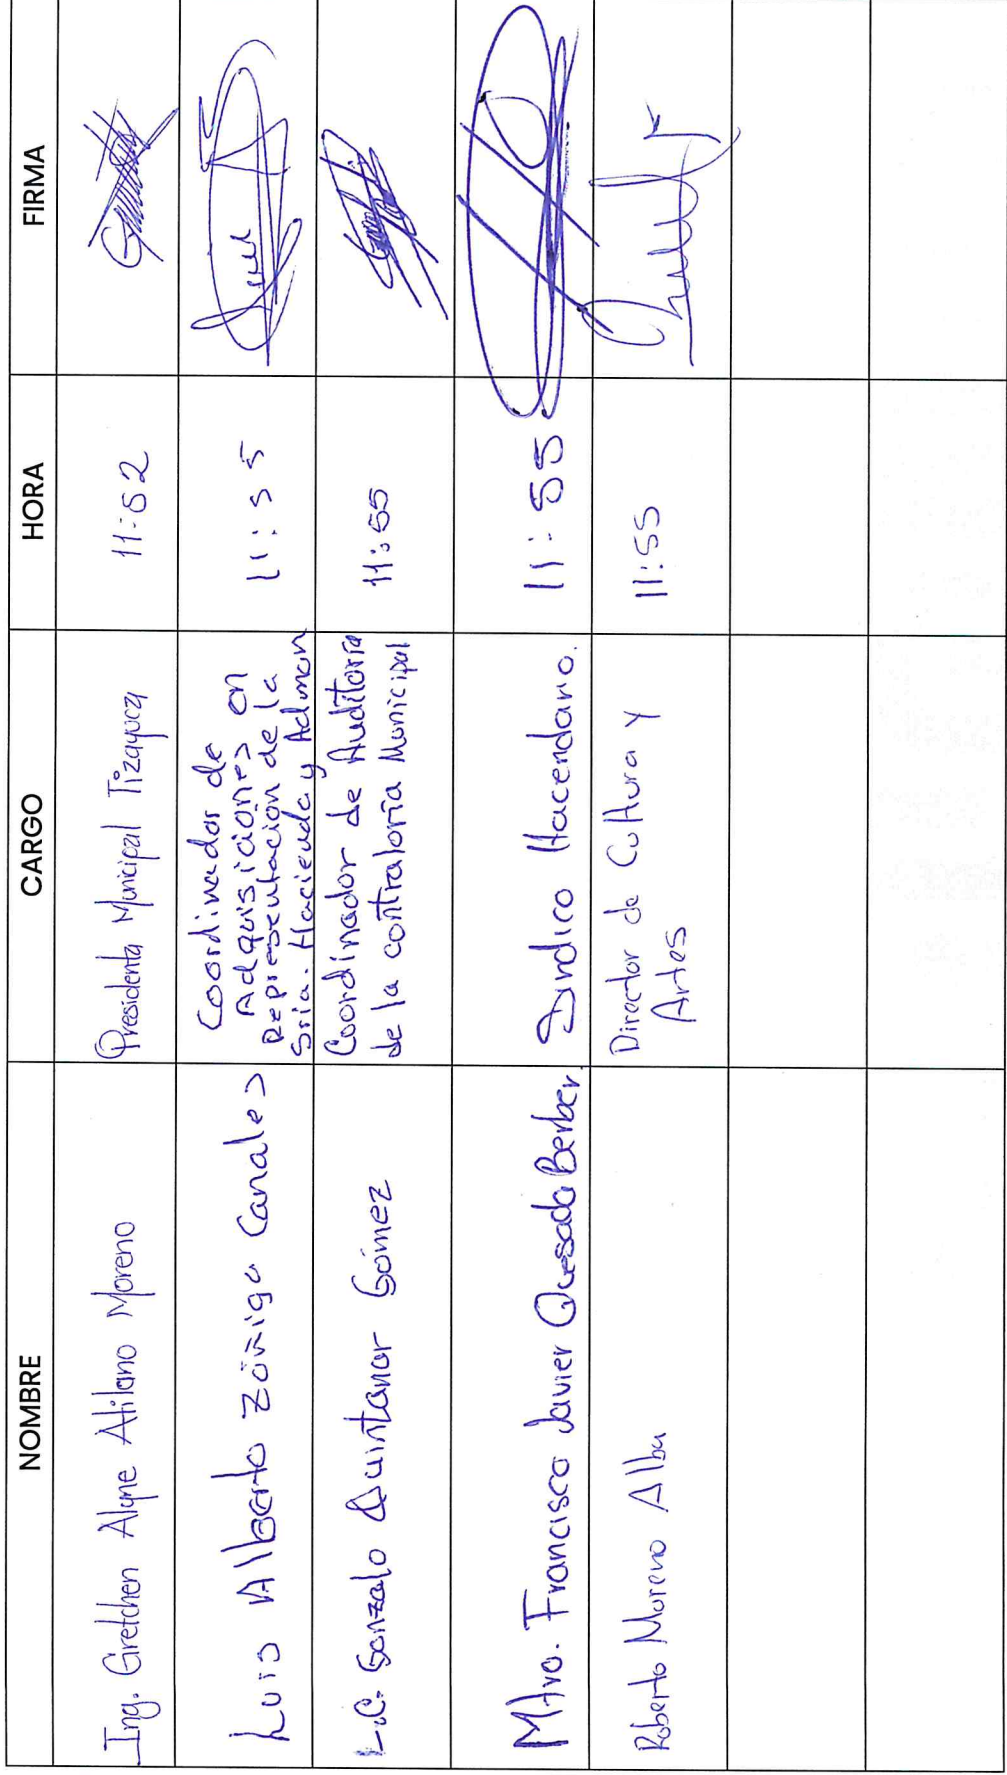 NOMBRE CARGO HORA FIRMA
Ing. Gretchen Alyne Atilano Moreno Presidenta Municipal Tizayuca 11:52
Luis Alberto Zúñiga Canales Coordinador de
Adquisiciones en
Representación de la
Sria. Hacienda y Admon 11:55
L.C. Gonzalo Quintanar Gómez Coordinador de Auditoria
de la contraloría Municipal 11:55
Mtro. Francisco Javier Quesada Berber. Sindico Hacendario. 11:55
Roberto Moreno Alba Director de Cultura y
Artes 11:55